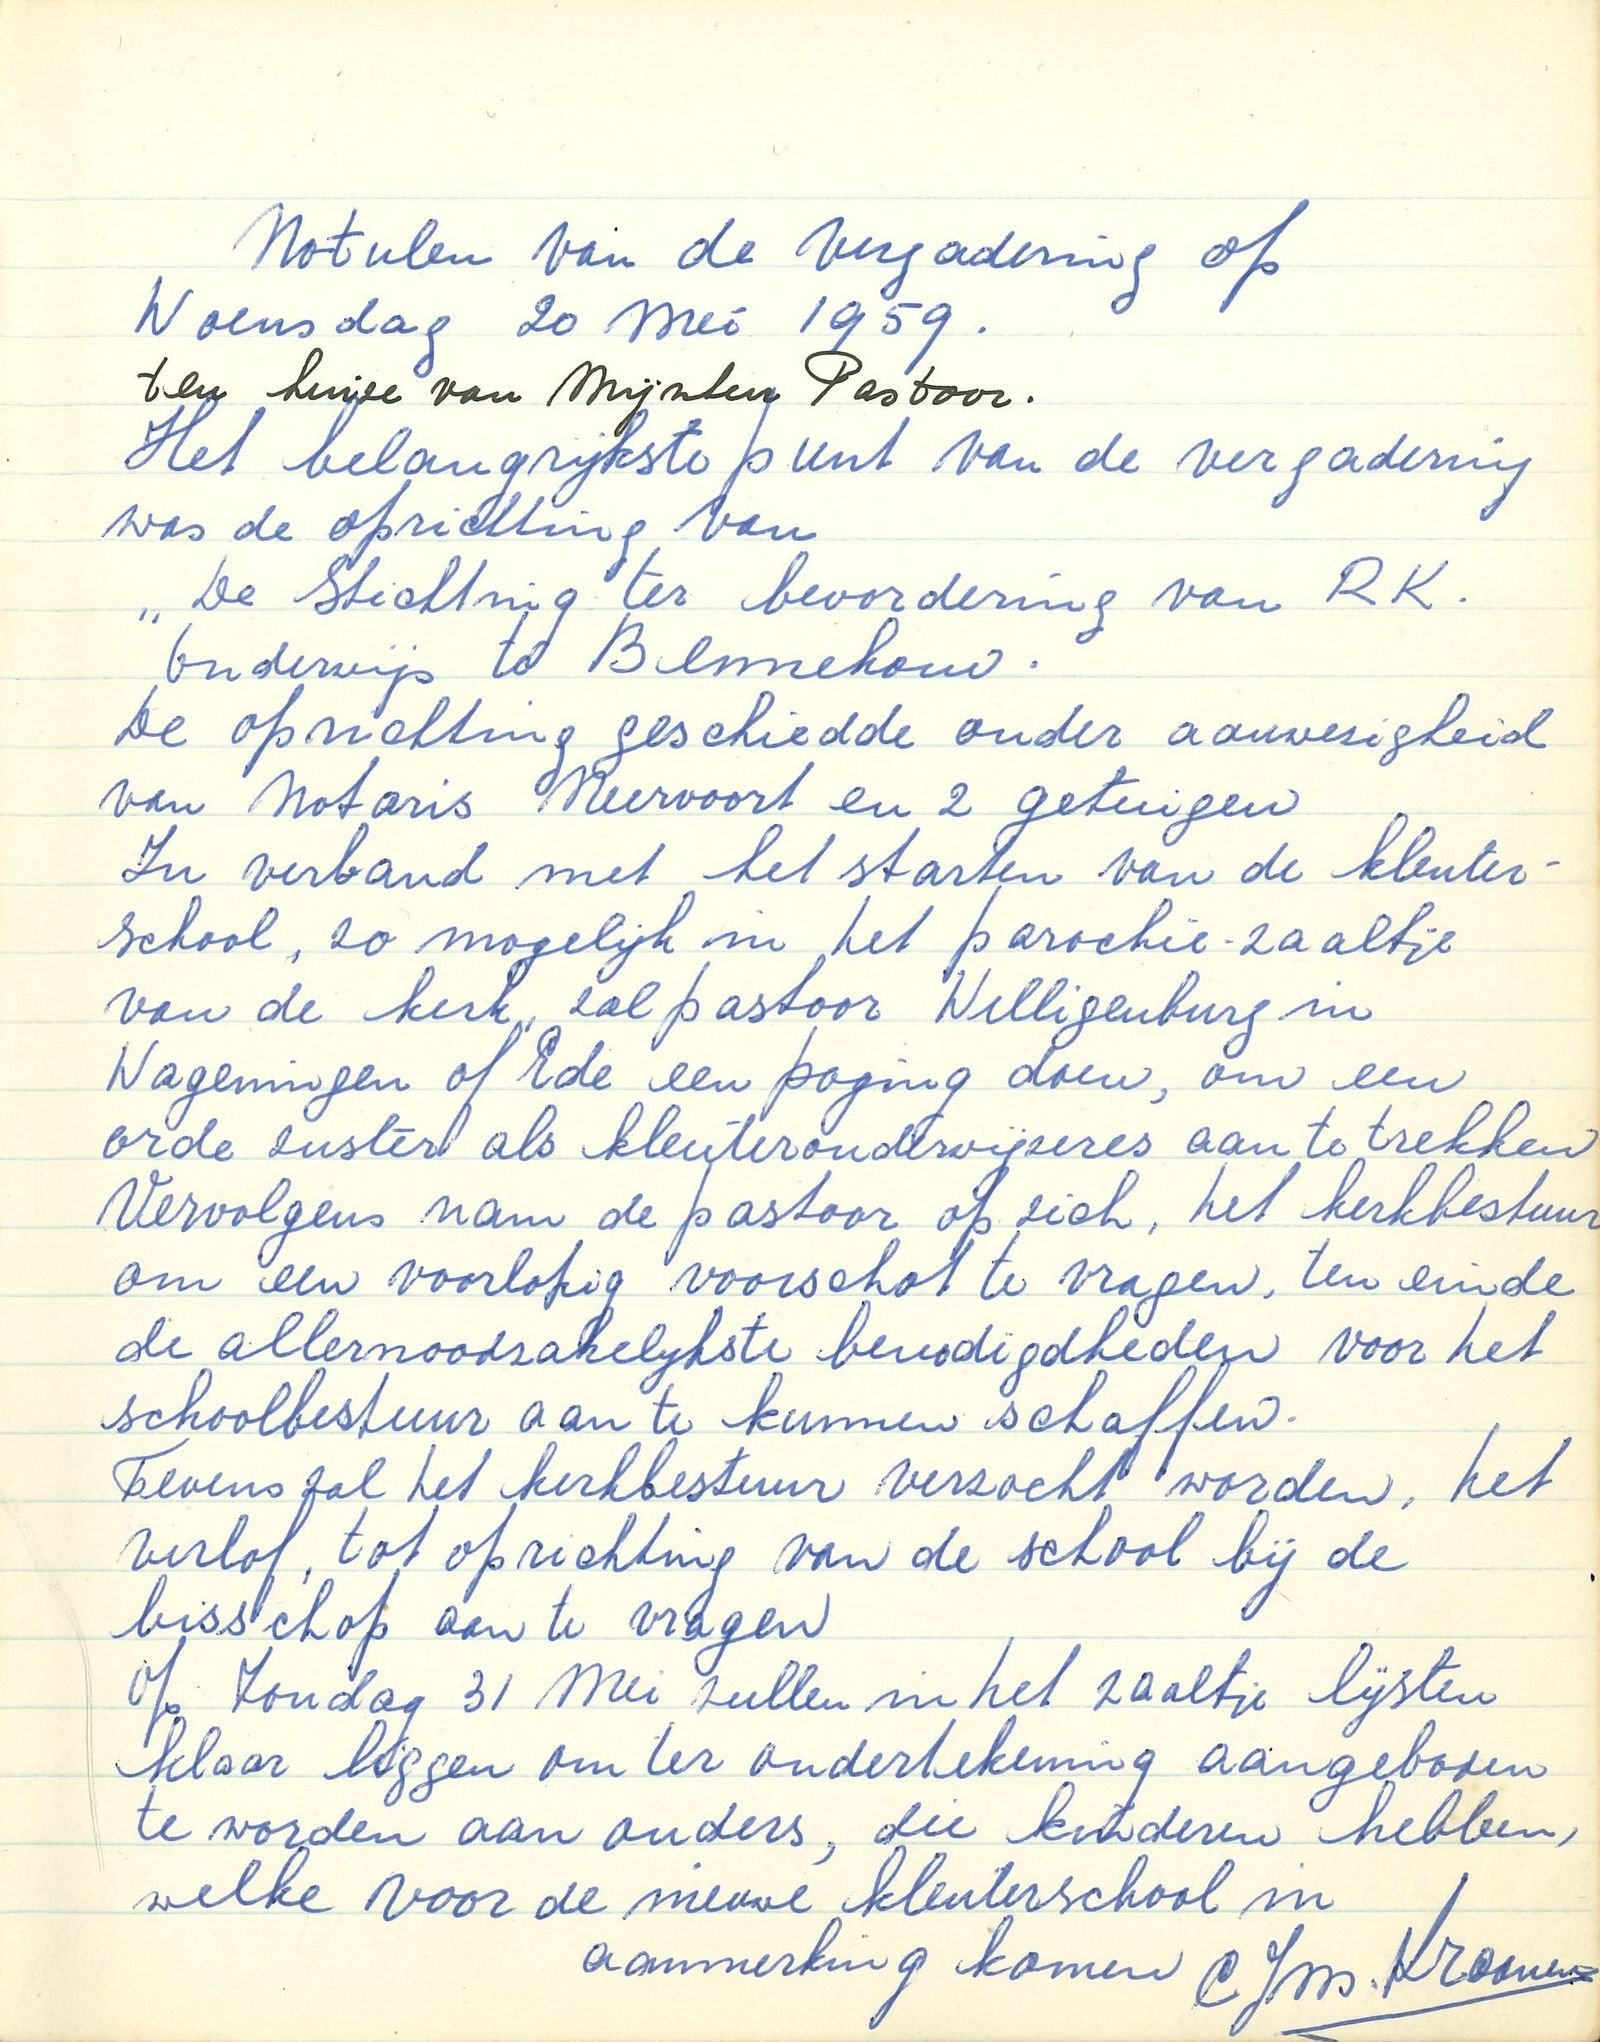 Notulen van de vergadering op
Woensdag 20 Mei 1959.
ten huize van Mijnheer Pastoor.
Het belangrijkste punt van de vergadering
was de oprichting van
„De Stichting ter bevordering van RK.
Onderwijs te Bennekom.
De oprichting geschiedde onder aanwezigheid
van Notaris Meervoort en 2 getuigen
In verband met het starten van de kleuter-
school, zo mogelijk in het parochie-zaaltje
van de kerk, zal pastoor Willigenburg in
Wageningen of Ede een poging doen, om een
orde zuster als kleuteronderwijzeres aan te trekken
Vervolgens nam de pastoor op zich, het kerkbestuur
om een voorlopig voorschot te vragen, ten einde
de allernoodzakelijkste benodigdheden voor het
schoolbestuur aan te kunnen schaffen.
Tevens zal het kerkbestuur verzocht worden, het
verlof, tot oprichting van de school bij de
bisschop aan te vragen
Op Zondag 31 Mei zullen in het zaaltje lijsten
klaar liggen om ter ondertekening aangeboden
te worden aan ouders, die kinderen hebben,
welke voor de nieuwe kleuterschool in
aanmerking komen